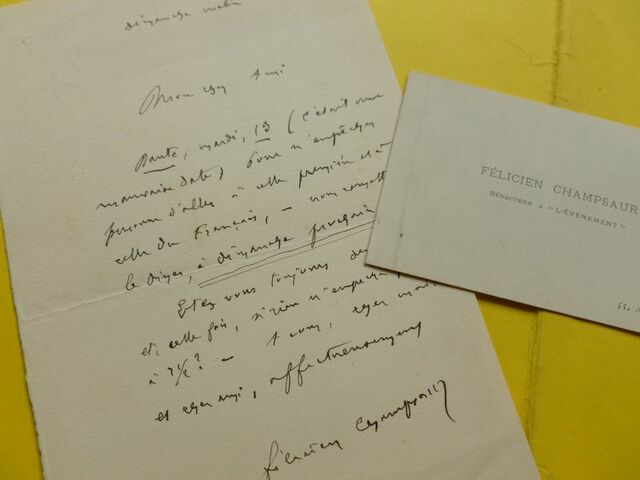 dimanche matin
Mon cher Ami
Dante, mardi, 13 (c'était une
mauvaise date) pour n'empêcher
personne d'aller à cette première et à
celle du Français, - nous
le dîner, à dimanche prochain
Êtes vous toujours
et, cette fois, si rien n'empêche
à 7 1/2? - A vous, cher
et cher ami, affectueusement
Félicien Champsaur
FÉLICIEN CHAMPSAUR
RÉDACTEUR A "L'ÉVÉNEMENT"
55,